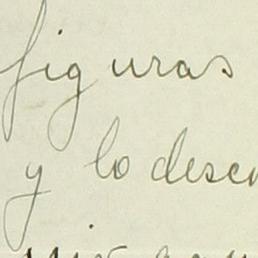 figuras
y lo desen